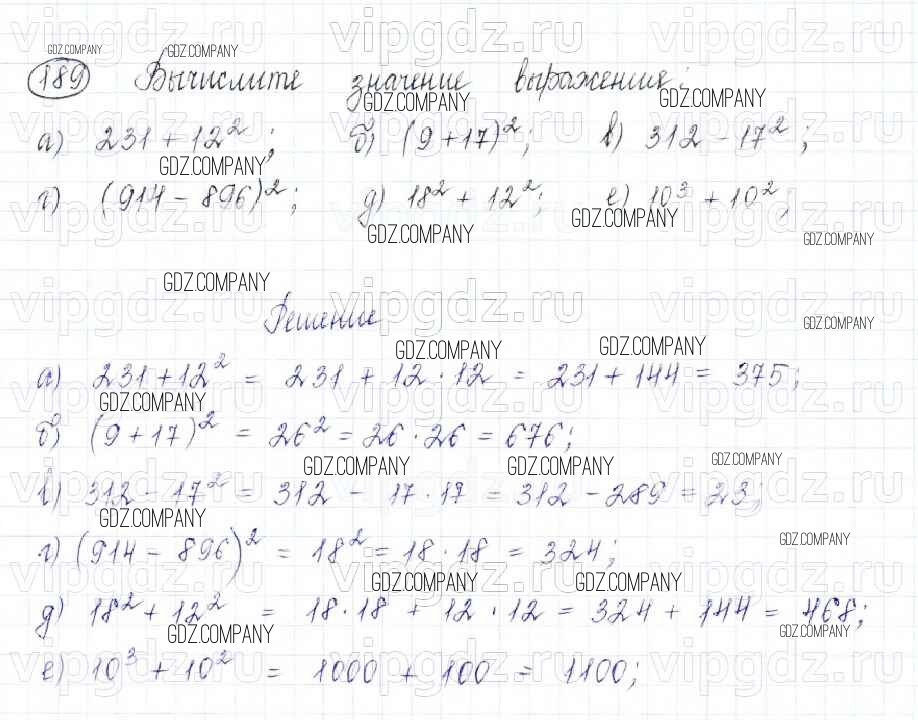 189 Вычислите значение выражения:
а) 231 + 12²; б) (9+17)²; в) 312 - 17²;
г) (914 - 896)²; д) 18² + 12²; е) 10³ + 10²;
Решение
а) 231+12² = 231 + 12 · 12 = 231 + 144 = 375;
б) (9+17)² = 26² = 26 · 26 = 676;
в) 312 - 17² = 312 - 17 · 17 = 312 - 289 = 23;
г) (914 - 896)² = 18² = 18 · 18 = 324;
д) 18² + 12² = 18·18 + 12 · 12 = 324 + 144 = 468;
е) 10³ + 10² = 1000 + 100 = 1100;
GDZ.COMPANY
vipgdz.ru